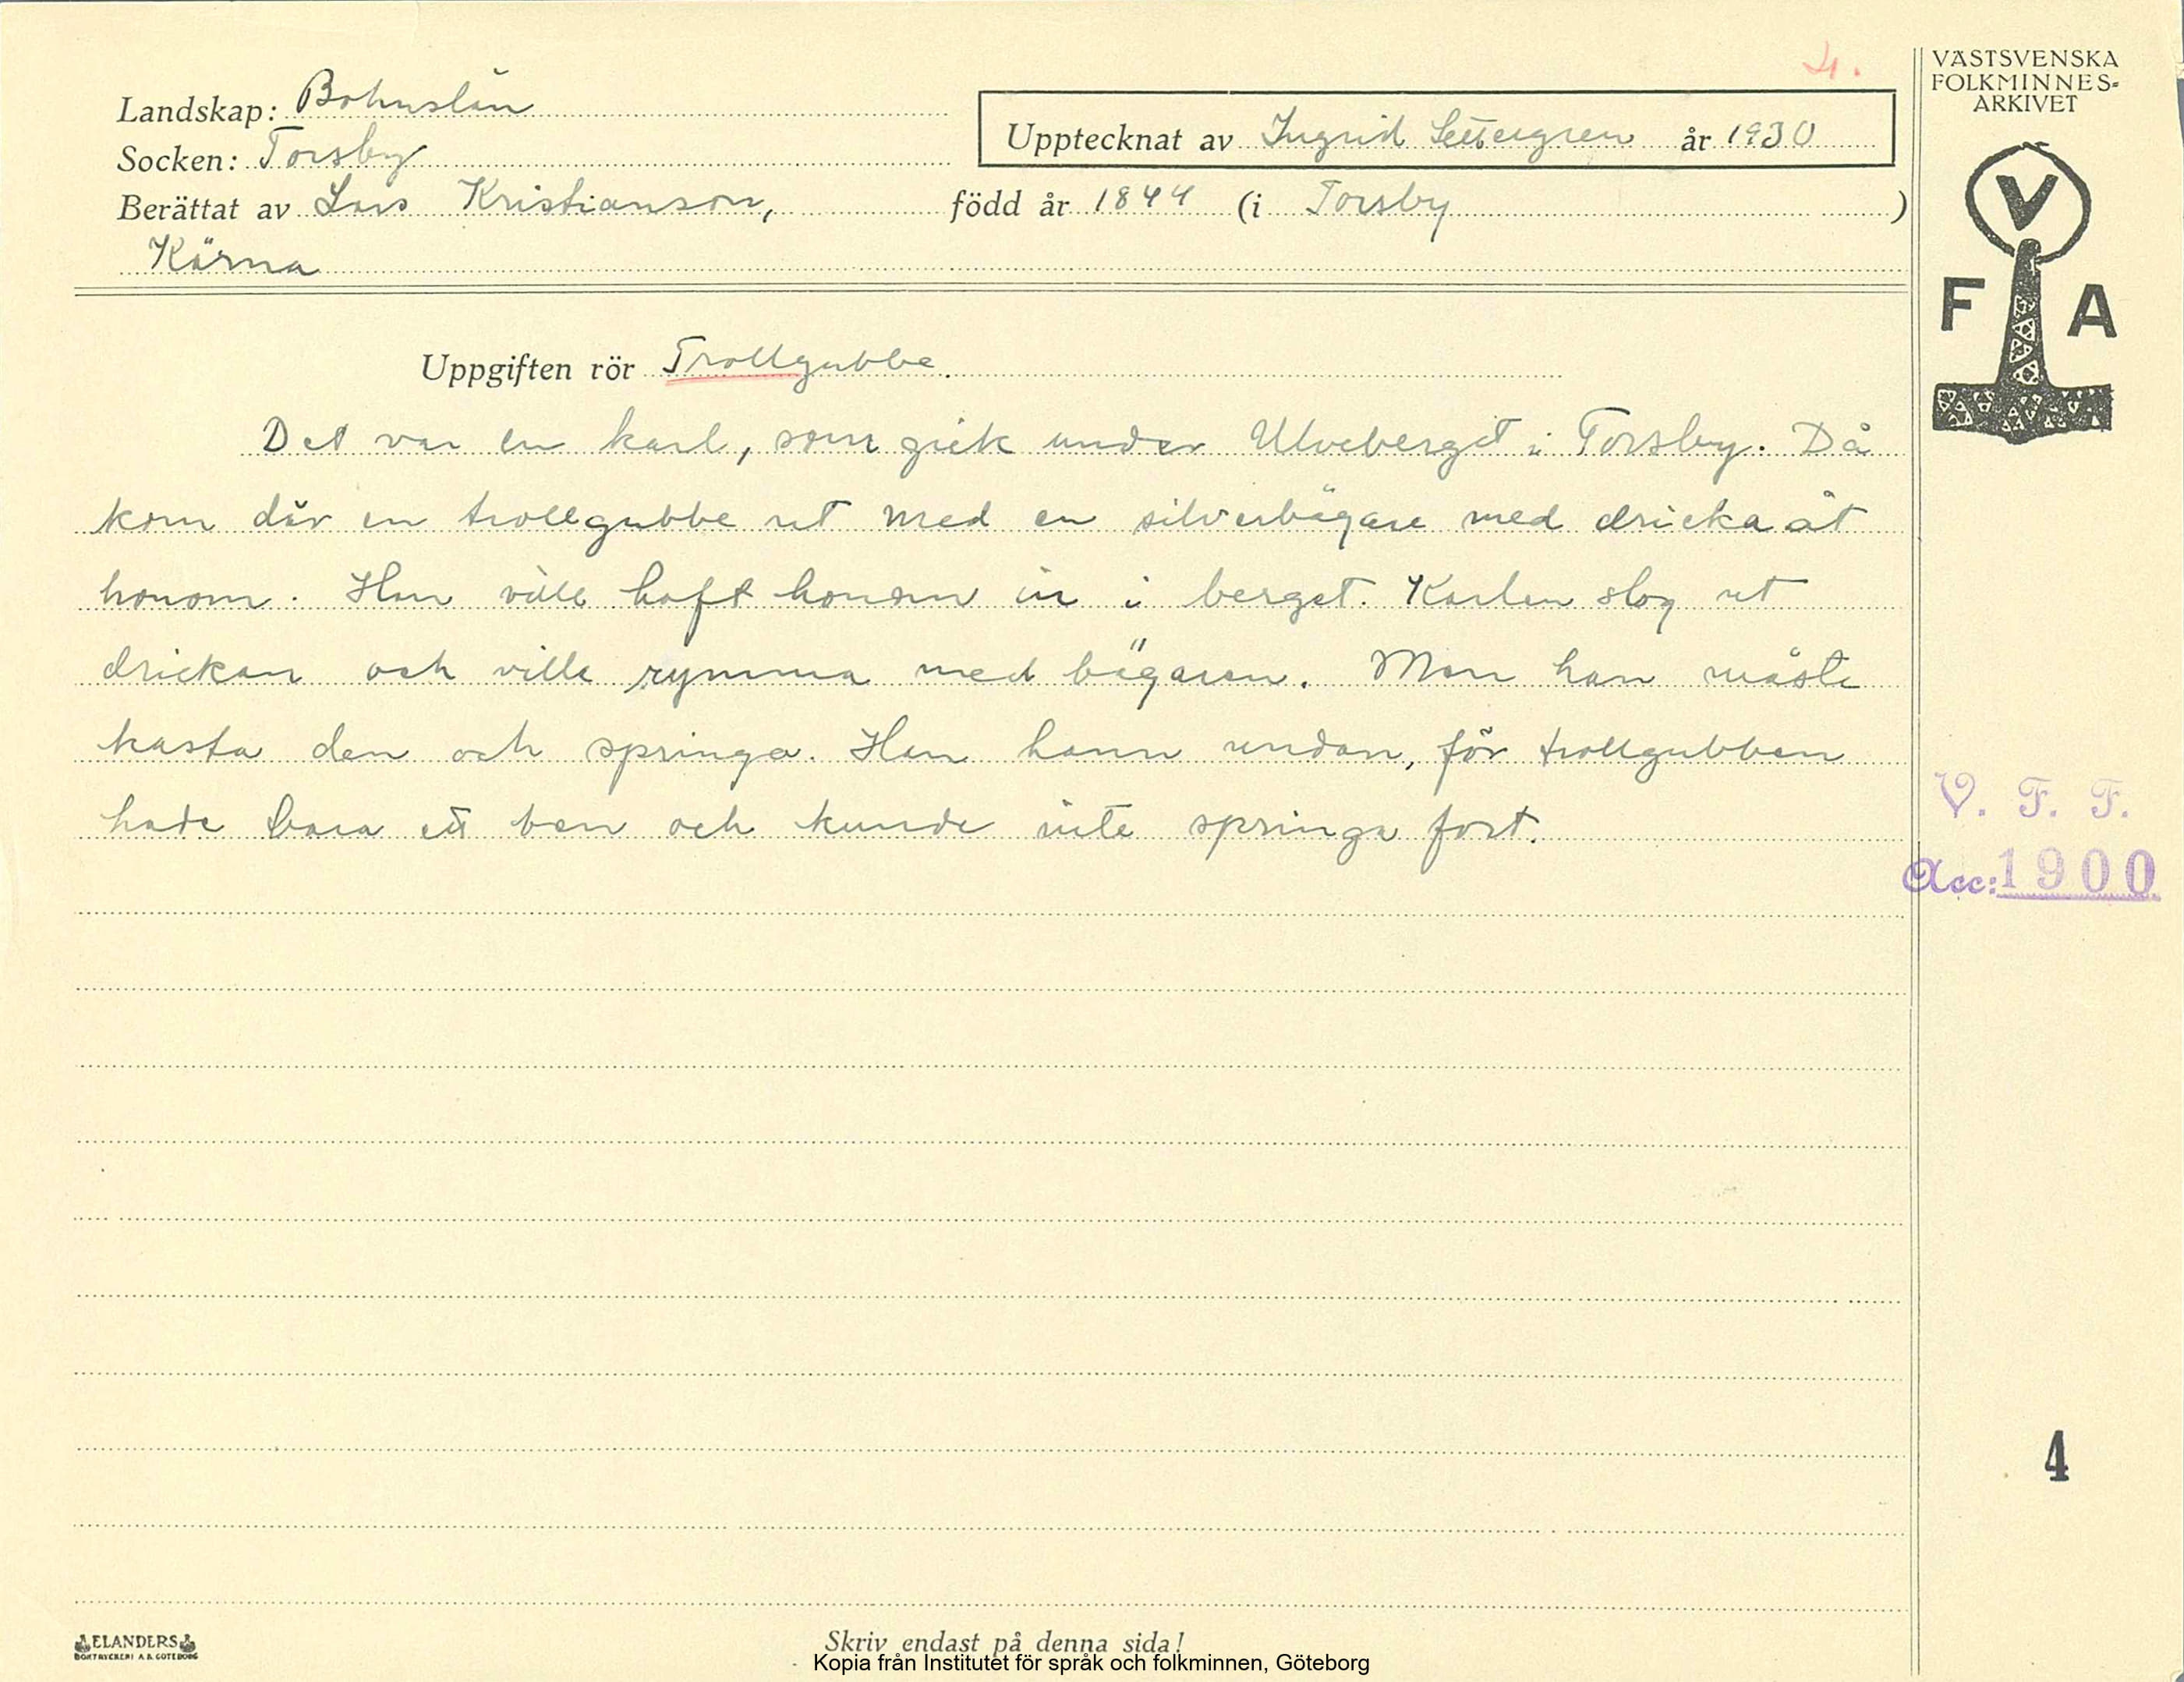 4.
VÄSTSVENSKA
FOLKMINNES=
ARKIVET
Landskap: Bohuslän
Upptecknat av Ingrid Settergren år 1930
Socken: Torsby
Berättat av Lars Kristianson, född år 1844 (i Torsby)
Kärna
V
F A
Uppgiften rör Trollgubbe.
Det var en karl, som gick under Ulveberget i Torsby. Då
kom där en trollgubbe ut med en silverbägare med dricka åt
honom. Han ville haft honom in i berget. Karlen slog ut
drickan och ville rymma med bägaren. Men han måste
kasta den och springa. Han hann undan, för trollgubben
hade bara ett ben och kunde inte springa fort.
V. F. F.
Acc: 1900
4
ELANDERS
BOKTRYCKERI A.B. GÖTEBORG
Skriv endast på denna sida!
Kopia från Institutet för språk och folkminnen, Göteborg